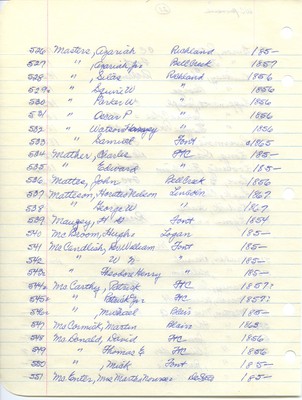 526 Masters, Azariah Richland 185-
527 " , Azariah Jr Bell Creek 1857
528 " , Silas Richland 1856
529 " Squire W " 1856
530 " Parker W " 1856
531 " Oscar P " 1856
532 " Watson " 1856
533 " Samuel Font 1865
534 Mather, Charlie FC 185-
535 " Edward " 185-
536 Mattes, John Bell Creek 1856
537 Mattison, Horatio Nelson Lincoln 1867
538 " George W " 1867
539 Font 1854
540 McBroom, Hugh Logan 185-
541 McCandlish, William Font 185-
542 " W N " 185-
543 " Theodore Henry " 185-
544 McCarthy, Patrick FC 1857?
545 " Patrick Jr FC 1857?
546 " , Michael Blair 185-
547 McCormick, Martin Blair 1862
548 McDonald, David FC 1856
549 " Thomas E FC 1856
550 " , Mick Font 185-
551 Mrs Martha DeSoto 185-